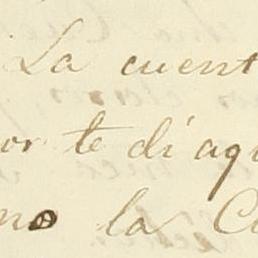 La cuent
or te di aqu
no la C